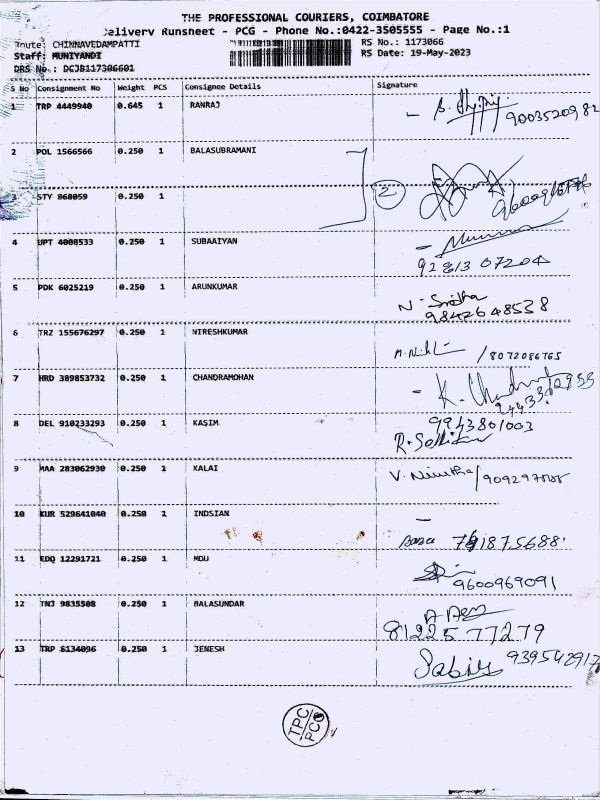 THE PROFESSIONAL COURIERS, COIMBATORE
Delivery Runsheet - PCG - Phone No.:0422-3505555 - Page No.:1
Route: CHINNAVEDAMPATTI RS No.: 1173066
Staff: MUNIYANDI RS Date: 19-May-2023
DRS No.: DCJB117306601
S No Consignment No Weight PCS Consignee Details Signature
1 TRP 4449940 0.645 1 RANRAJ
2 POL 1566566 0.250 1 BALASUBRAMANI
2
3 STY 868059 0.250 1
4 UPT 4008533 0.250 1 SUBAAIYAN
92813 07204
5 PDK 6025219 0.250 1 ARUNKUMAR
98426 48538
6 TRZ 155676297 0.250 1 NIRESHKUMAR
8072086765
7 HRD 389853732 0.250 1 CHANDRAMOHAN
8 DEL 910233293 0.250 1 KASIM
9943801003
9 MAA 283062930 0.250 1 KALAI
10 KUR 529641040 0.250 1 INDSIAN
11 EDQ 12291721 0.250 1 MOU
9600969091
12 TNJ 9835508 0.250 1 BALASUNDAR
8122577279
13 TRP 6134096 0.250 1 JENESH
TPC
PCG